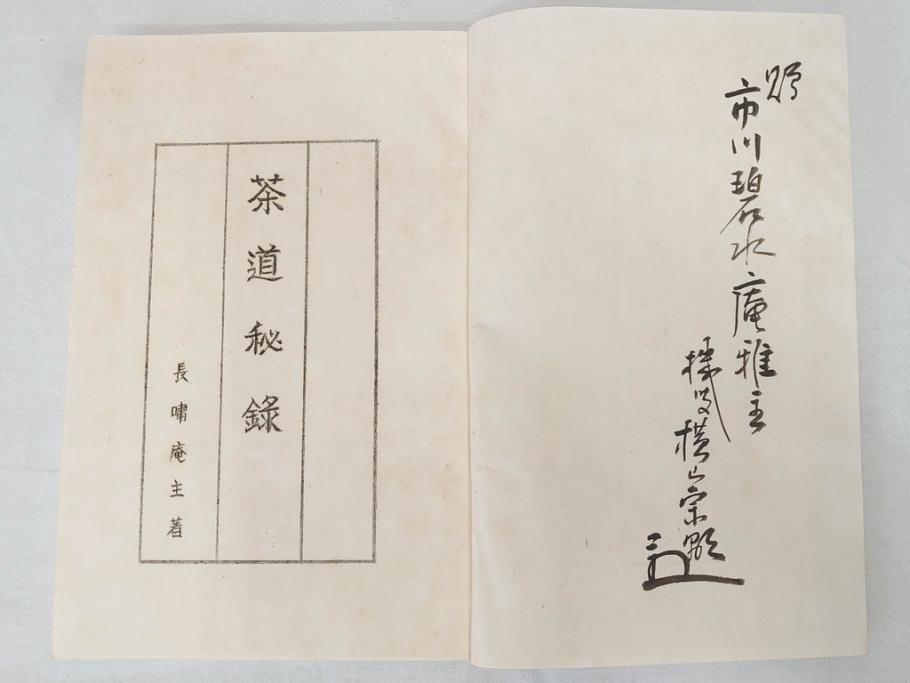 贈
市川碧水庵雅主
横山宗
茶道秘錄
長嘯庵主著